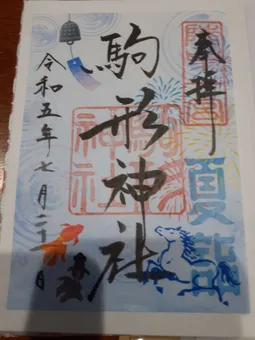 奉拝
駒形神社
令和五年七月二十一日
夏詣